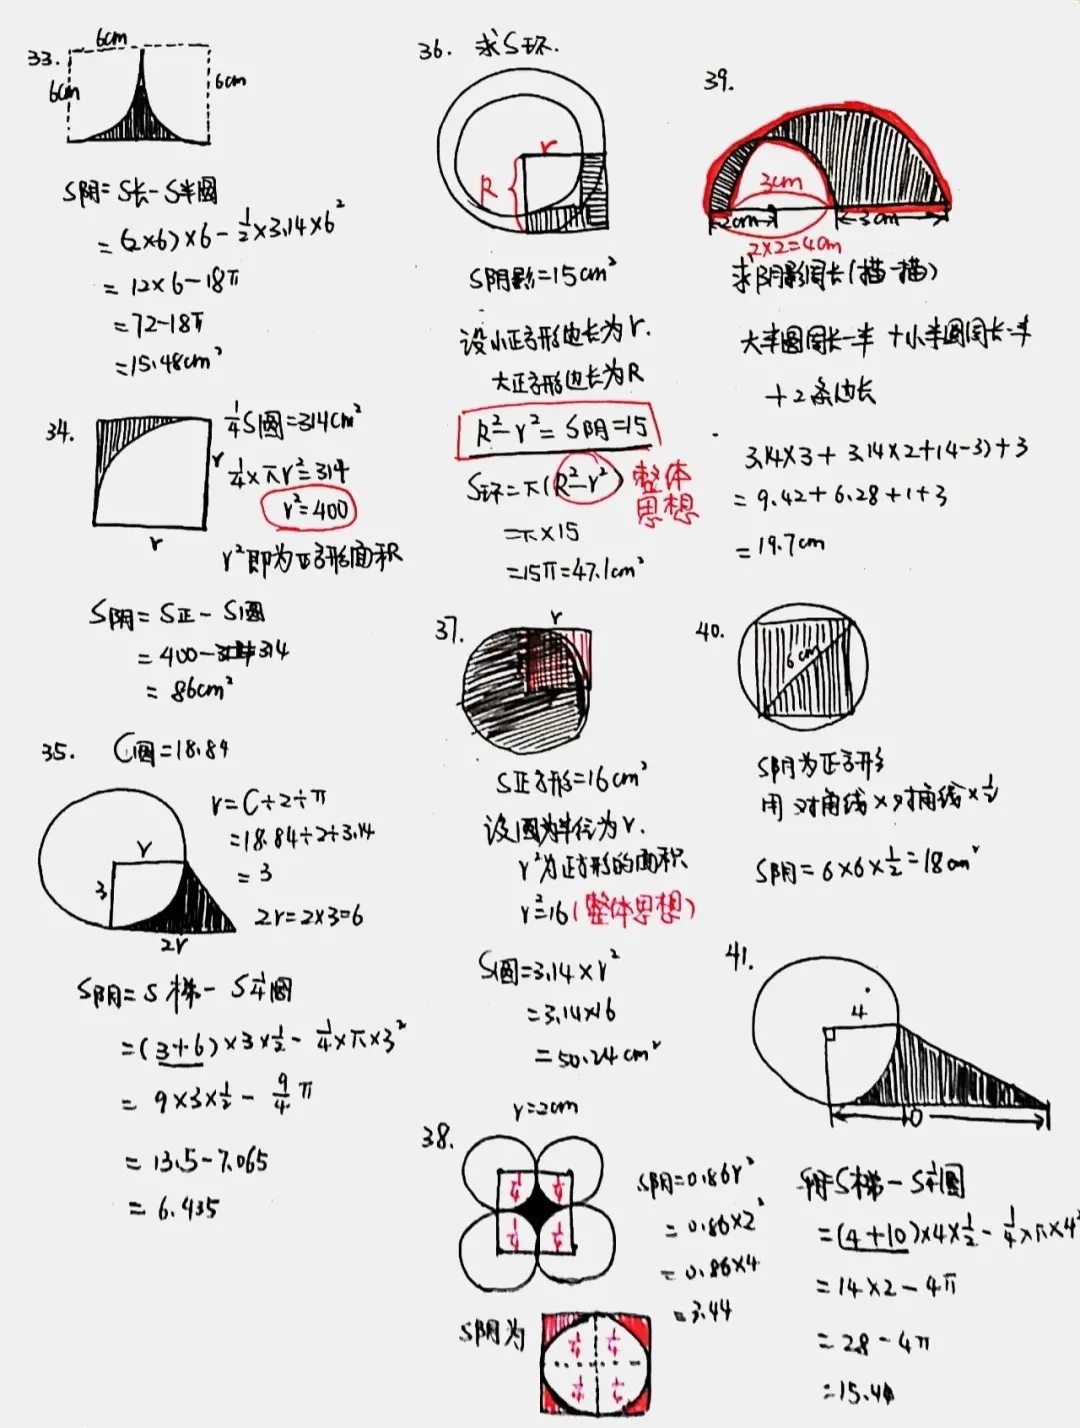 33.
6cm
6cm
6cm
S阴=S长-S半圆
=(2×6)×6-½×3.14×6²
=12×6-18π
=72-18π
=15.48cm²
34.
r
r
¼S圆=314cm²
¼×πr²=314
r²=400
r²即为正方形面积
S阴=S正-S圆
=400-314
=86cm²
35. C圆=18.84
r
3
2r
r=C÷2÷π
=18.84÷2÷3.14
=3
2r=2×3=6
S阴=S梯-S¼圆
=(3+6)×3×½-¼×π×3²
=9×3×½-9/4π
=13.5-7.065
=6.435
36. 求S环.
r
R
S阴影=15cm²
设小正方形边长为r.
大正方形边长为R
R²-r²=S阴=15
S环=π(R²-r²)
整体
思想
=π×15
=15π=47.1cm²
37.
r
S正方形=16cm²
设圆半径为r.
r²为正方形的面积
r²=16(整体思想)
S圆=3.14×r²
=3.14×16
=50.24cm²
r=2cm
38.
¼ ¼
¼ ¼
S阴=0.86r²
=0.86×2²
=0.86×4
=3.44
S阴为
¼ ¼
¼ ¼
39.
3cm
2cm
3cm
2×2=4cm
求阴影周长(描一描)
大半圆周长一半+小半圆周长一半
+2条边长
3.14×3+3.14×2+(4-3)+3
=9.42+6.28+1+3
=19.7cm
40.
6cm
S阴为正方形
用对角线×对角线×½
S阴=6×6×½=18cm²
41.
4
10
S阴=S梯-S¼圆
=(4+10)×4×½-¼×π×4²
=14×2-4π
=28-4π
=15.44